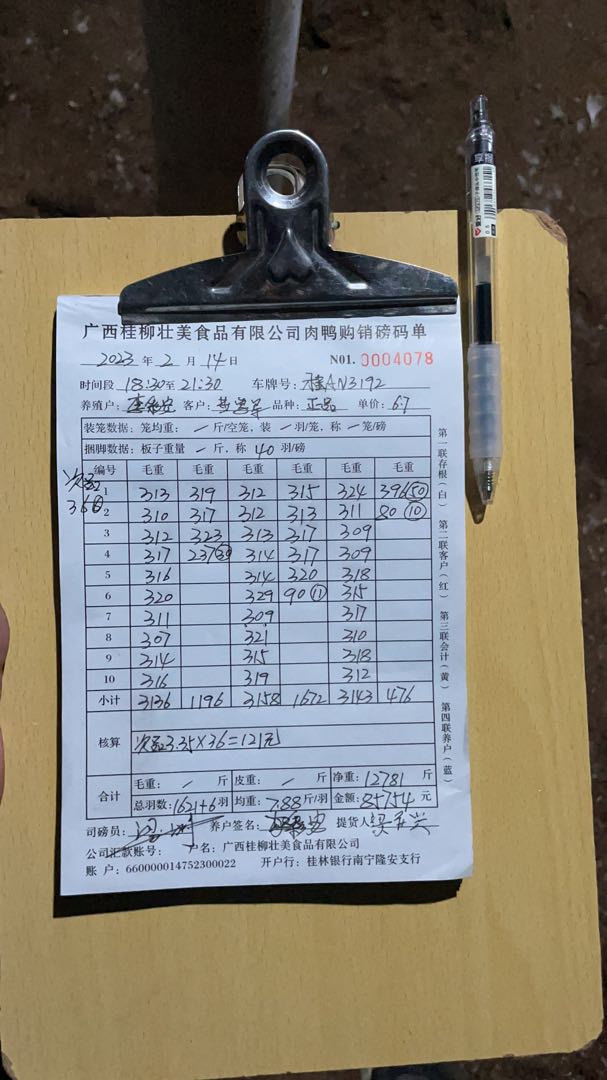 广西桂柳壮美食品有限公司肉鸭购销磅码单
2023 年 2 月 14 日 N01. 0004078
时间段 18:30 至 21:30 车牌号: 桂AN3192
养殖户: 客户: 品种: 正品 单价: 6.7
装笼数据: 笼均重: / 斤/空笼, 装 / 羽/笼, 称 / 笼/磅
捆脚数据: 板子重量 / 斤, 称 40 羽/磅
编号 毛重 毛重 毛重 毛重 毛重 毛重
1 313 319 312 315 324 396(50)
2 310 317 312 313 311 80(10)
3 312 323 313 317 309
4 317 237(30) 314 317 309
5 316 314 320 318
6 320 329 90(11) 315
7 311 309 317
8 307 321 310
9 314 315 318
10 316 319 312
小计 3136 1196 3158 1672 3143 476
核算 3.35×36=121元
合计 毛重: / 斤 皮重: / 斤 净重: 12781 斤
总羽数: 1621+6 羽 均重: 7.88 斤/羽 金额: 85754 元
司磅员: 养户签名: 提货人
公司汇款账号: 户名: 广西桂柳壮美食品有限公司
账 户: 660000014752300022 开户行: 桂林银行南宁隆安支行
第一联存根(白)
第二联客户(红)
第三联会计(黄)
第四联养户(蓝)